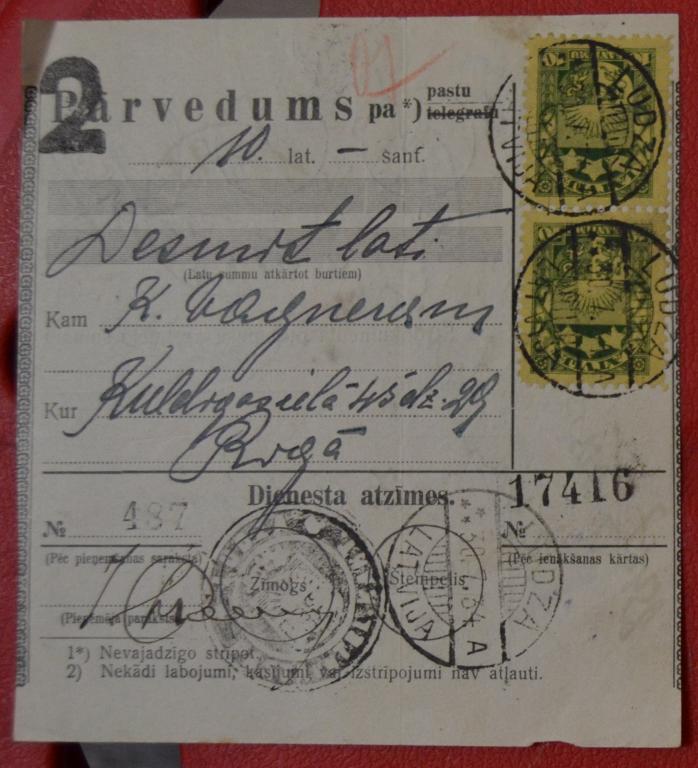 2
Pārvedums pa *) pastu
telegrafu
10. lat. — sant.
Desmit lati
(Latu summu atkārtot burtiem)
Kam K. Vagneram
Kur Kuldīgasielā 45 dz. 29
Rīgā
Dienesta atzīmes.
17416
№ 487
№
(Pēc pieņemšanas saraksta)
(Pēc ienākšanas kārtas)
Zīmogs
Stempelis
(Pieņēmēja paraksts)
LUDZA
LATVIJA
A
LUDZA
LUDZA
1*) Nevajadzīgo strīpot.
2) Nekādi labojumi, kasījumi vai izstrīpojumi nav atļauti.